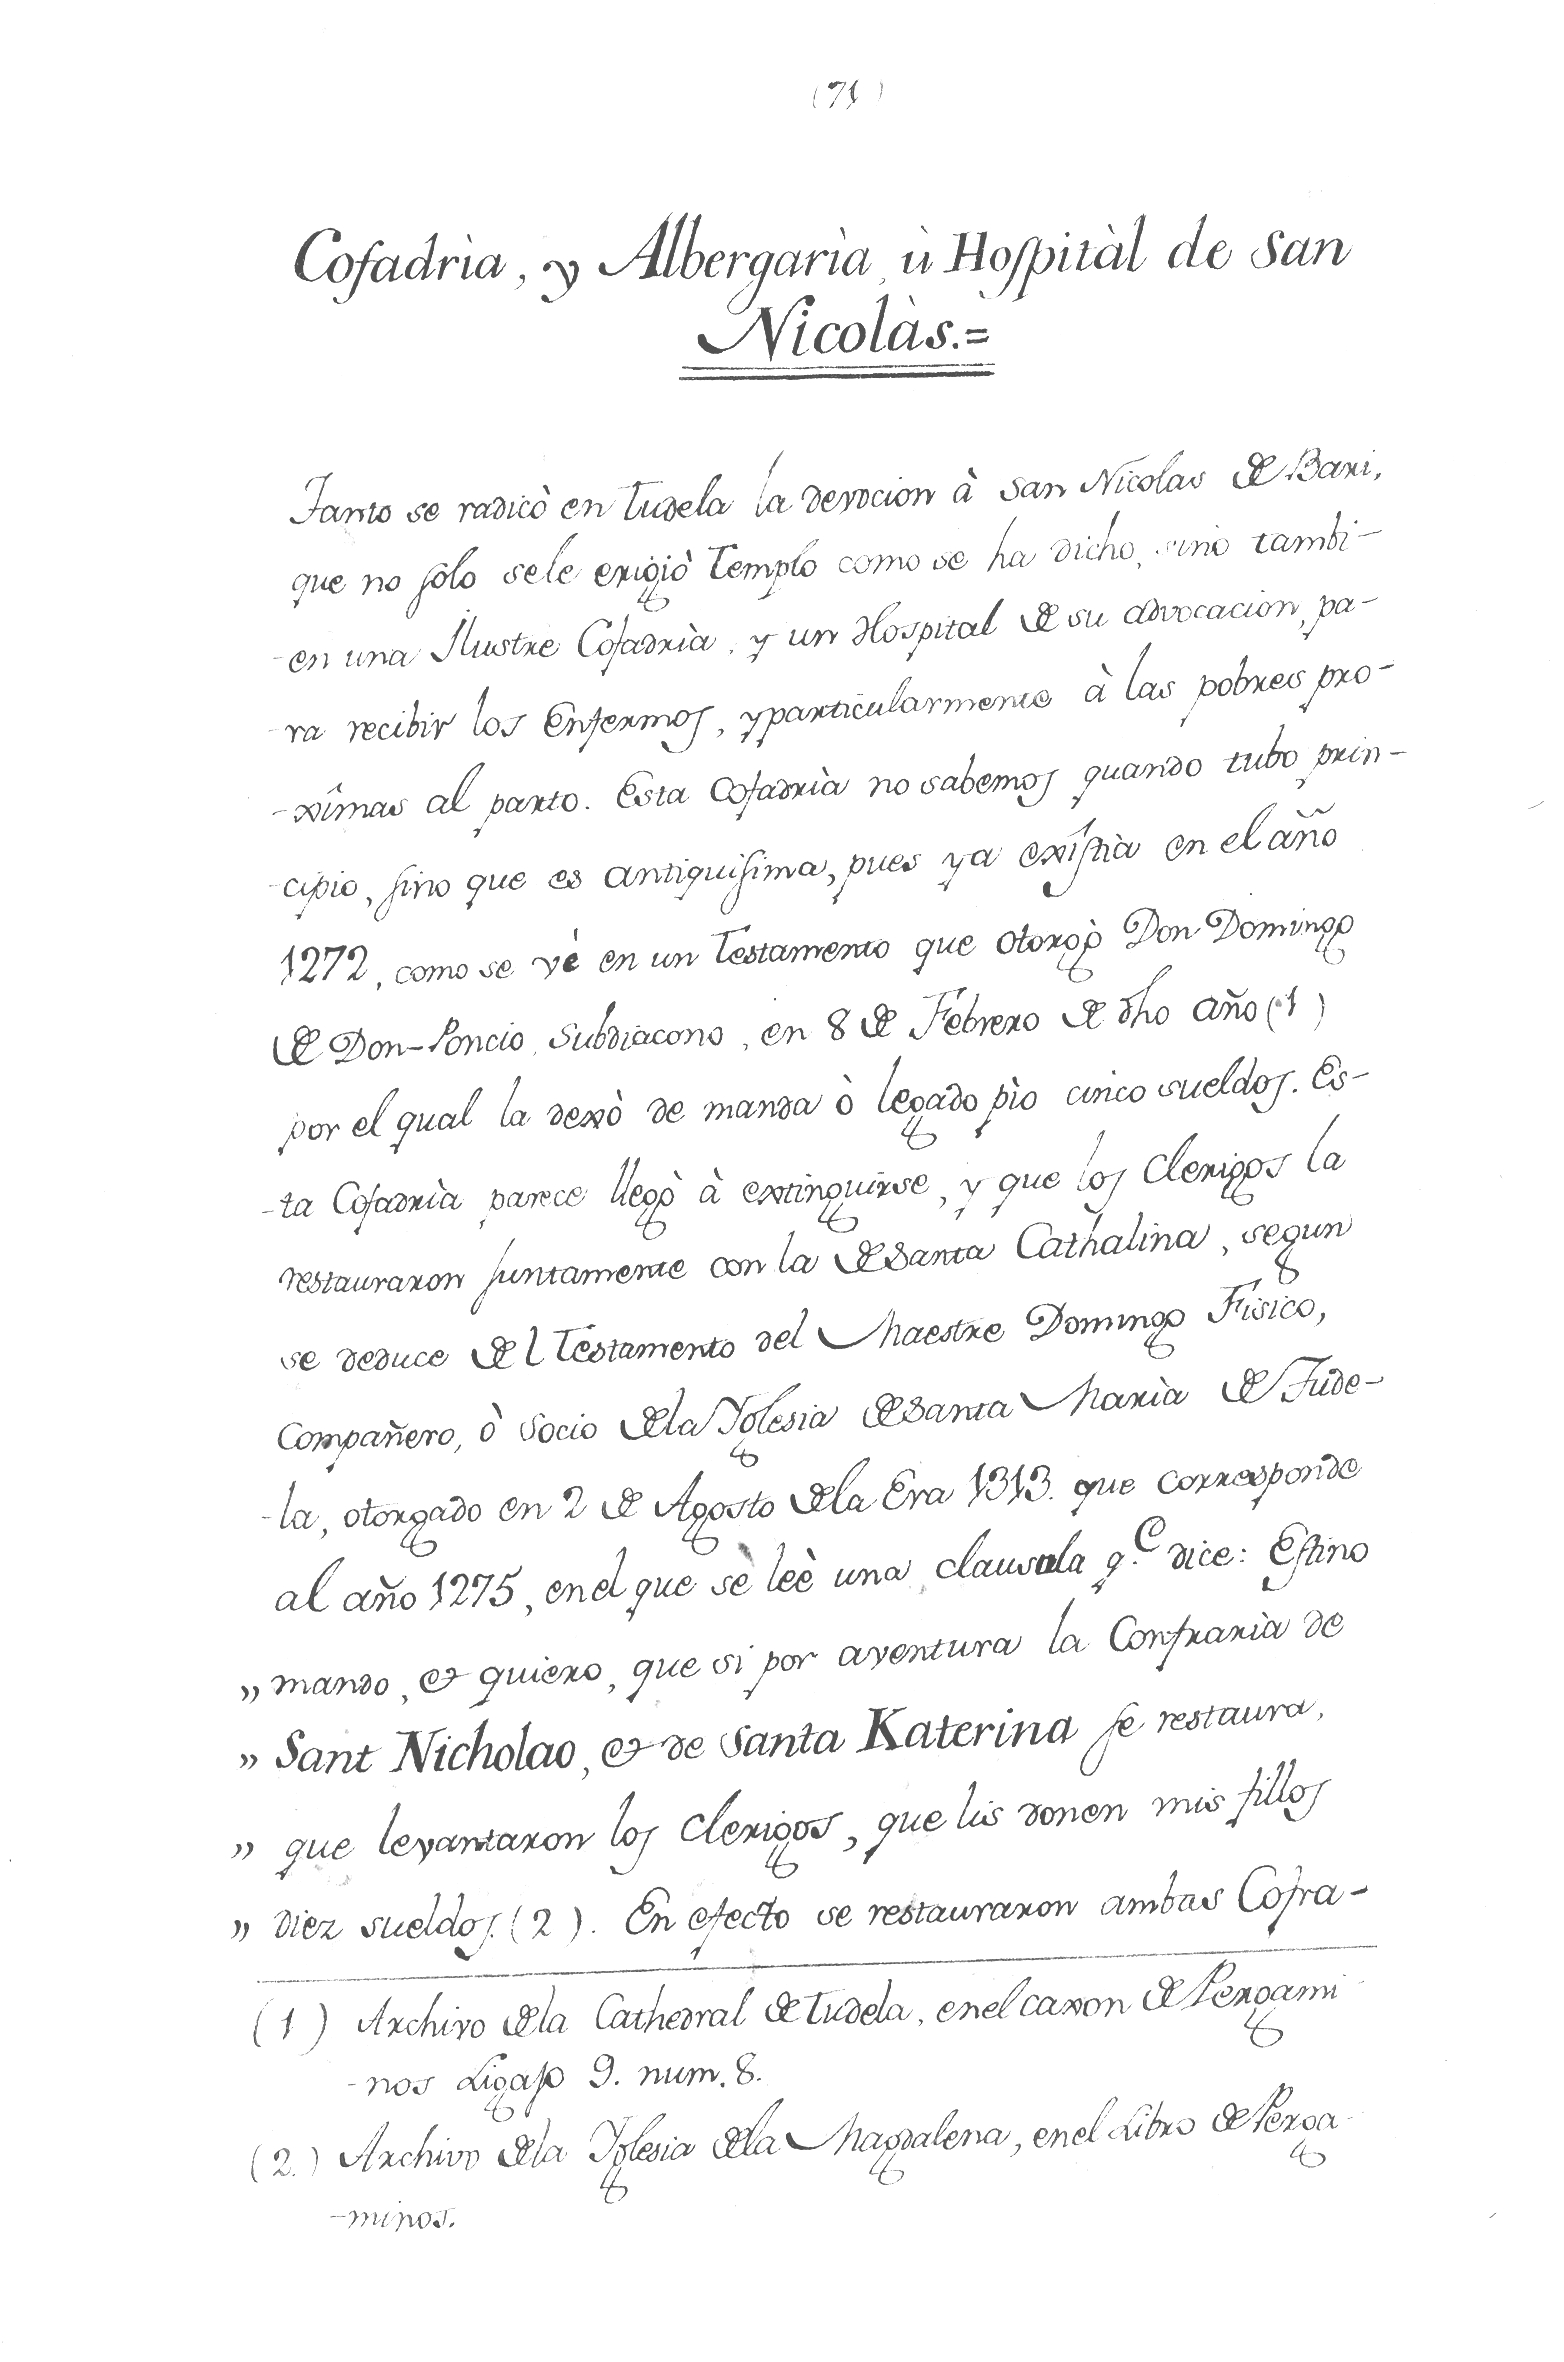 (71)
Cofadrìa, y Albergarìa, ù Hospitàl de San
Nicolàs.=
Tanto se radicò en Tudela la devocion à San Nicolas de Bari,
que no sólo sele erigiò Templo como se ha dicho, sino tambi-
-en una Ilustre Cofadrìa, y un Hospital de su advocacion, pa-
-ra recibir los Enfermos, y particularmente à las pobres pro-
-xîmas al parto. Esta Cofadrìa no sabemos quando tubo prin-
-cipio, sino que es antiquisima, pues ya exîstìa en el año
1272, como se vè en un Testamento que otorgò Don Domingo
de Don-Poncio, Subdiacono, en 8 de Febrero de dho año (1)
por el qual la dexò de manda ò legado pìo cinco sueldos. Es-
-ta Cofadrìa parece llegò à extinguirse, y que los Clerigos la
restauraron juntamente con la de Santa Cathalina, segun
se deduce del Testamento del Maestre Domingo Fisico,
Compañero, ò Socio dela Yglesia de Santa Marìa de Tude-
-la, otorgado en 2 de Agosto dela Era 1313. que corresponde
al año 1275, en el que sè leè una clausula q.e dice: Estino
" mando, et quiero, que si por aventura la Confrarìa de
" Sant Nicholao, et de Santa Katerina se restaura,
" que levantaron los Clerigos, que lis donen mis fillos
" Diez sueldos. (2). En efecto se restauraron ambas Cofra-
(1) Archivo dela Cathedral de Tudela, en el caxon de Pergami
-nos Ligaso 9. num. 8.
(2.) Archivo dela Yglesia dela Magdalena, en el Libro de Perga-
-minos.